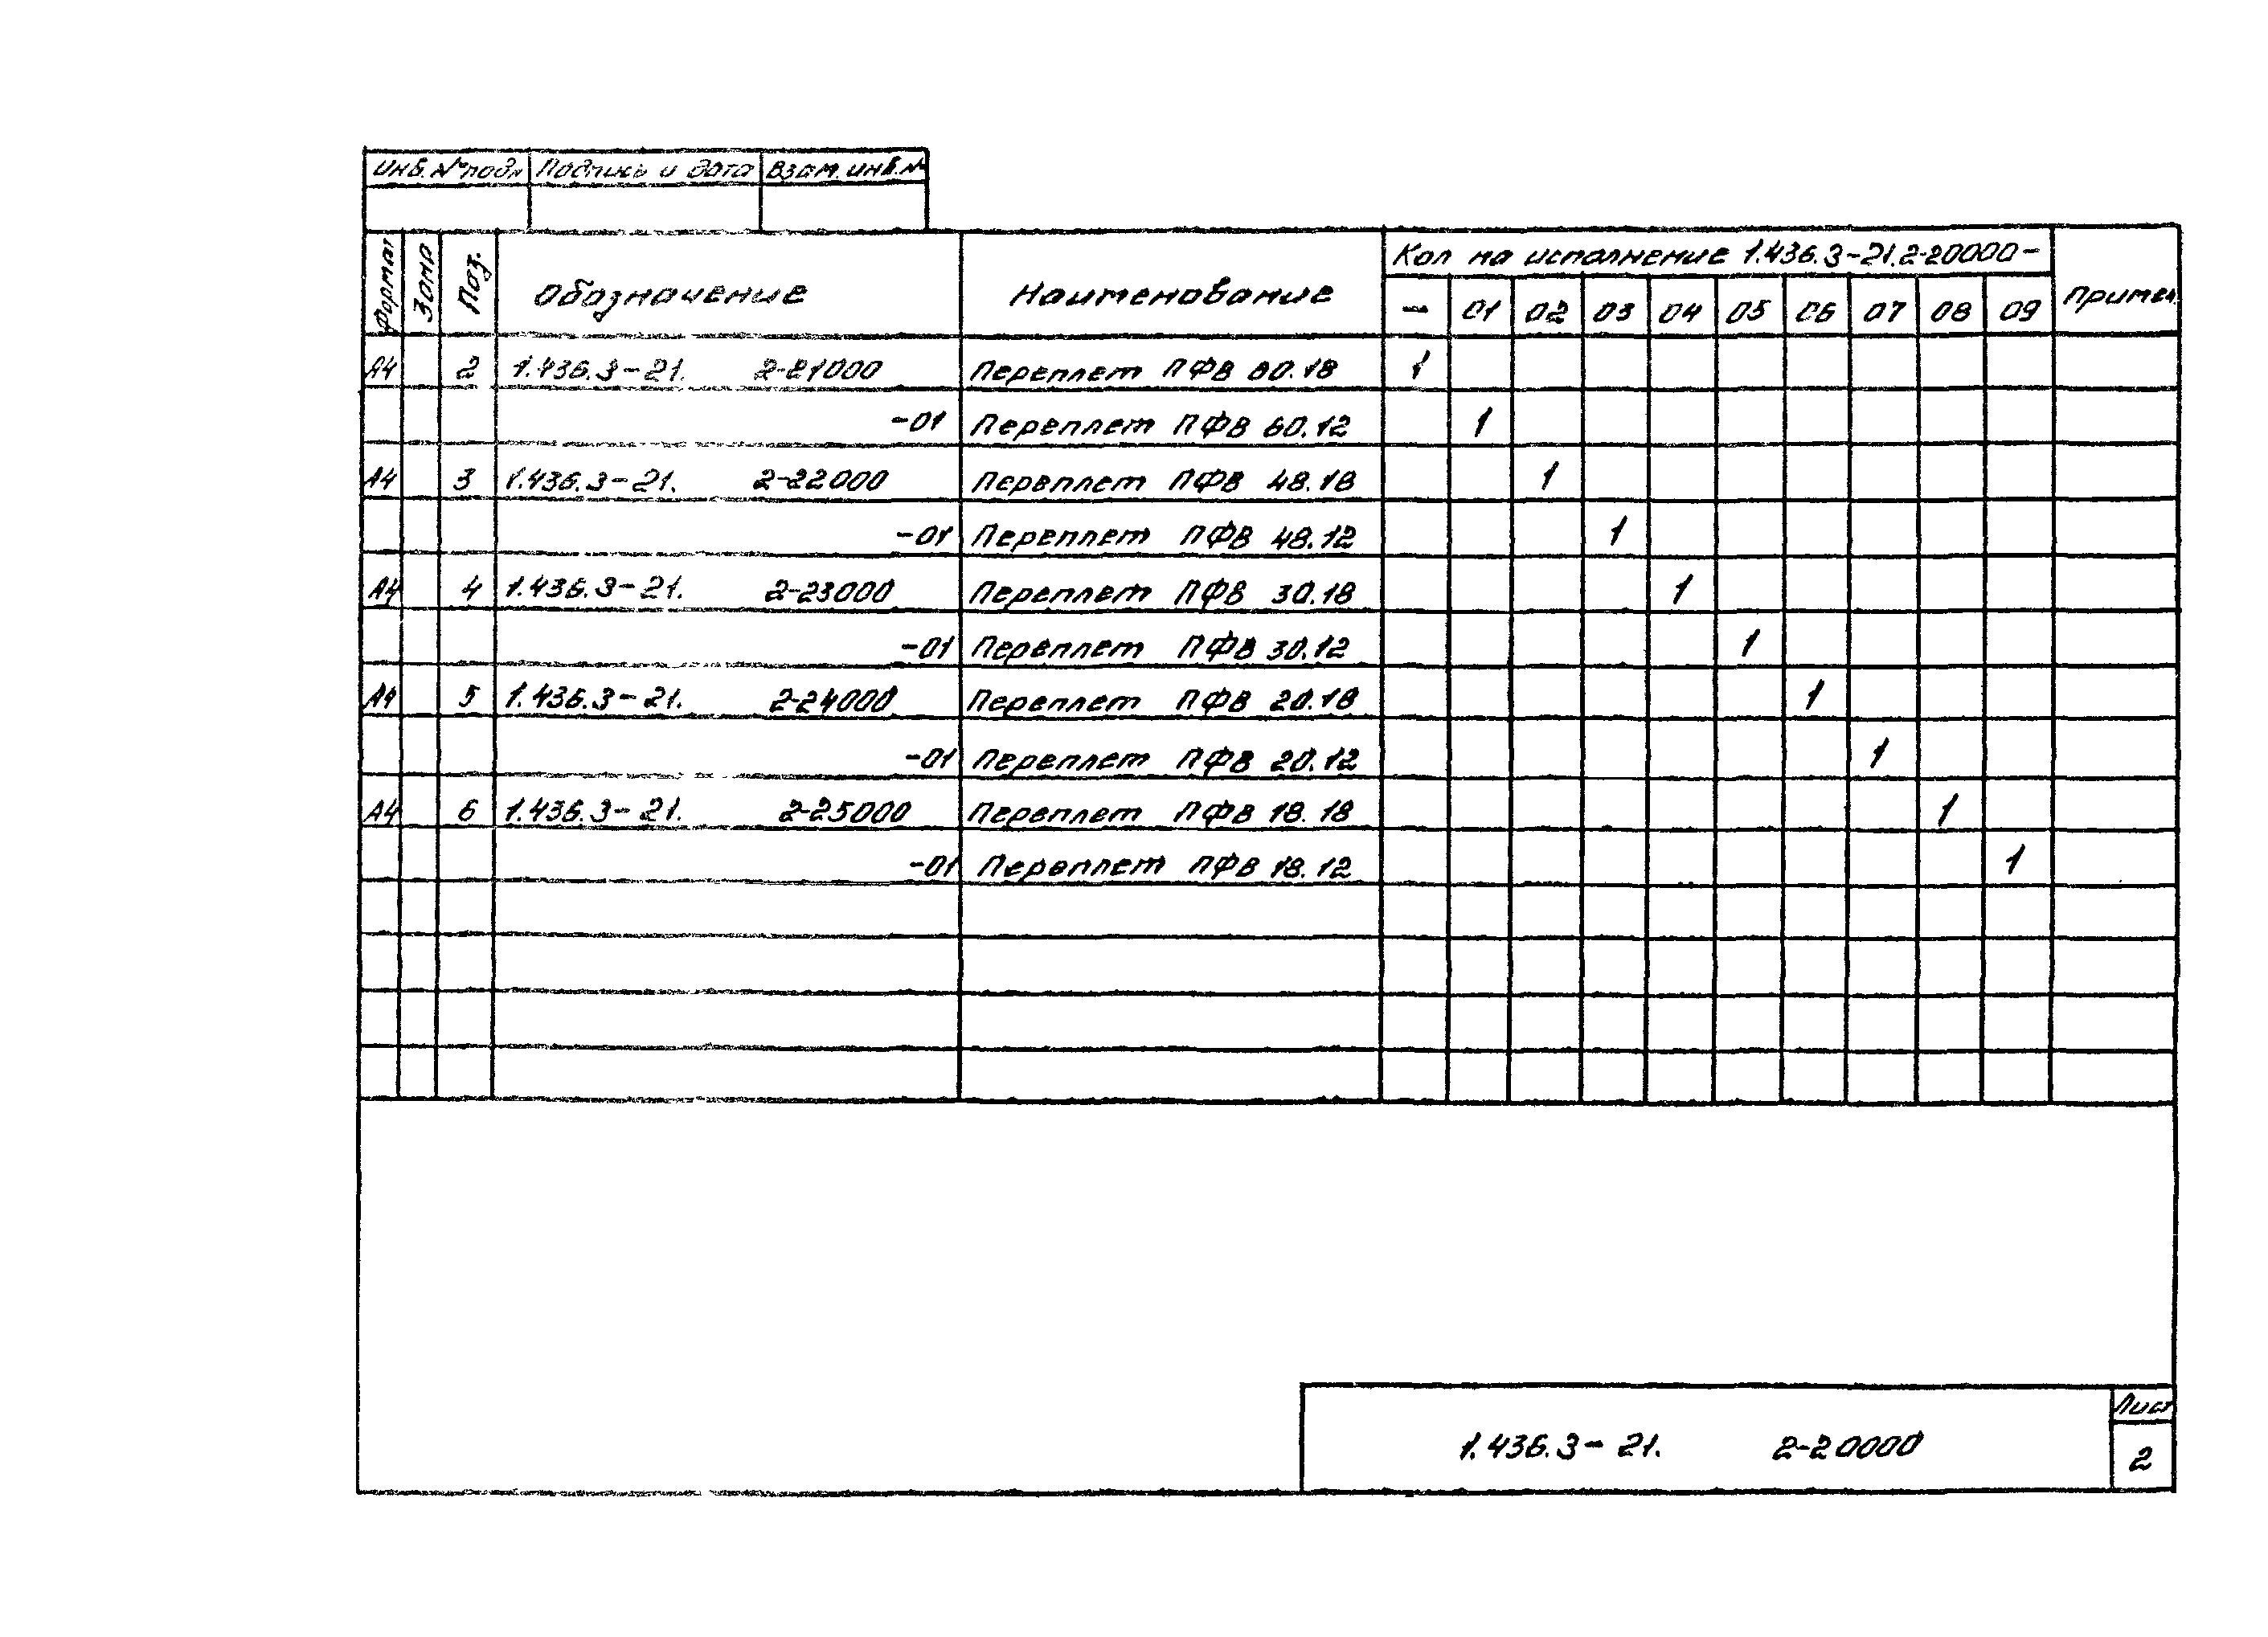 Инв. № подл Подпись и дата Взам. инв. №
Формат Зона Поз. Обозначение Наименование Кол на исполнение 1.436.3-21.2-20000- Примеч.
— 01 02 03 04 05 06 07 08 09
А4 2 1.436.3-21. 2-21000 Переплет ПФВ 60.18 1
-01 Переплет ПФВ 60.12 1
А4 3 1.436.3-21. 2-22000 Переплет ПФВ 48.18 1
-01 Переплет ПФВ 48.12 1
А4 4 1.436.3-21. 2-23000 Переплет ПФВ 30.18 1
-01 Переплет ПФВ 30.12 1
А4 5 1.436.3-21. 2-24000 Переплет ПФВ 20.18 1
-01 Переплет ПФВ 20.12 1
А4 6 1.436.3-21. 2-25000 Переплет ПФВ 18.18 1
-01 Переплет ПФВ 18.12 1
1.436.3-21. 2-20000
Лист
2